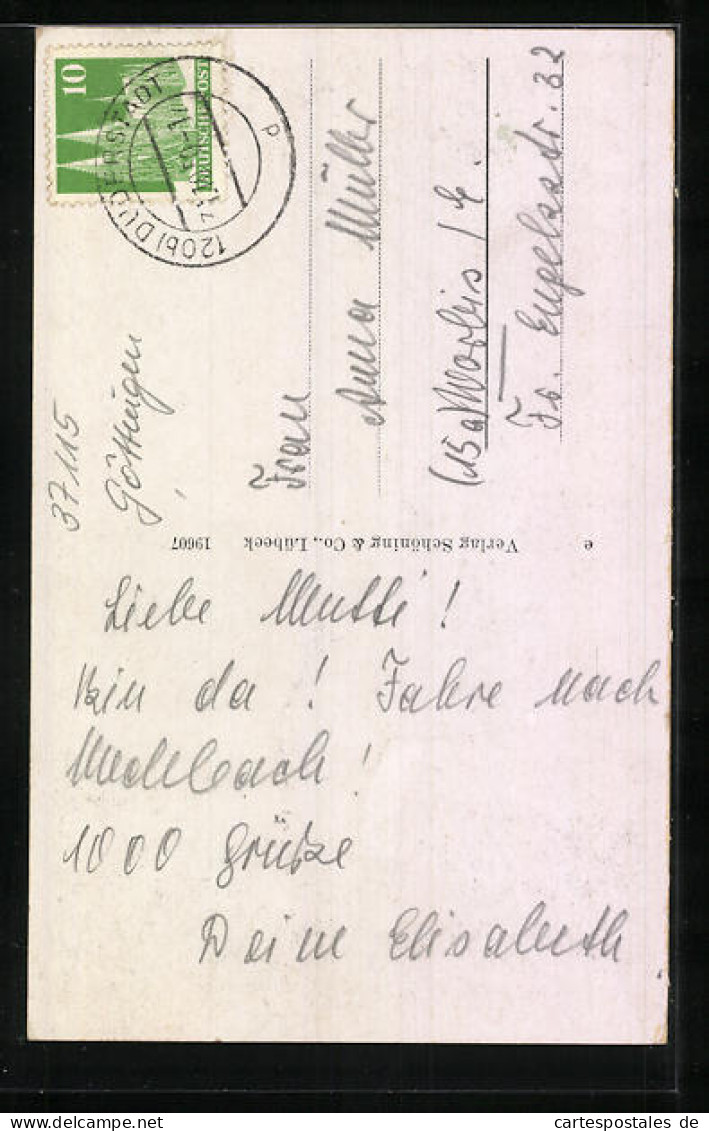 10
DEUTSCHE POST
(20b) DUDERSTADT
p
37115
Göttingen
Frau
Anna Müller
(15a) Worbis / E.
Fr. Engelsstr. 32
e Verlag Schöning & Co., Lübeck 19607
Liebe Mutti!
Bin da! Fahre nach
1000 Grüße
Deine Elisabeth
cartespostales de